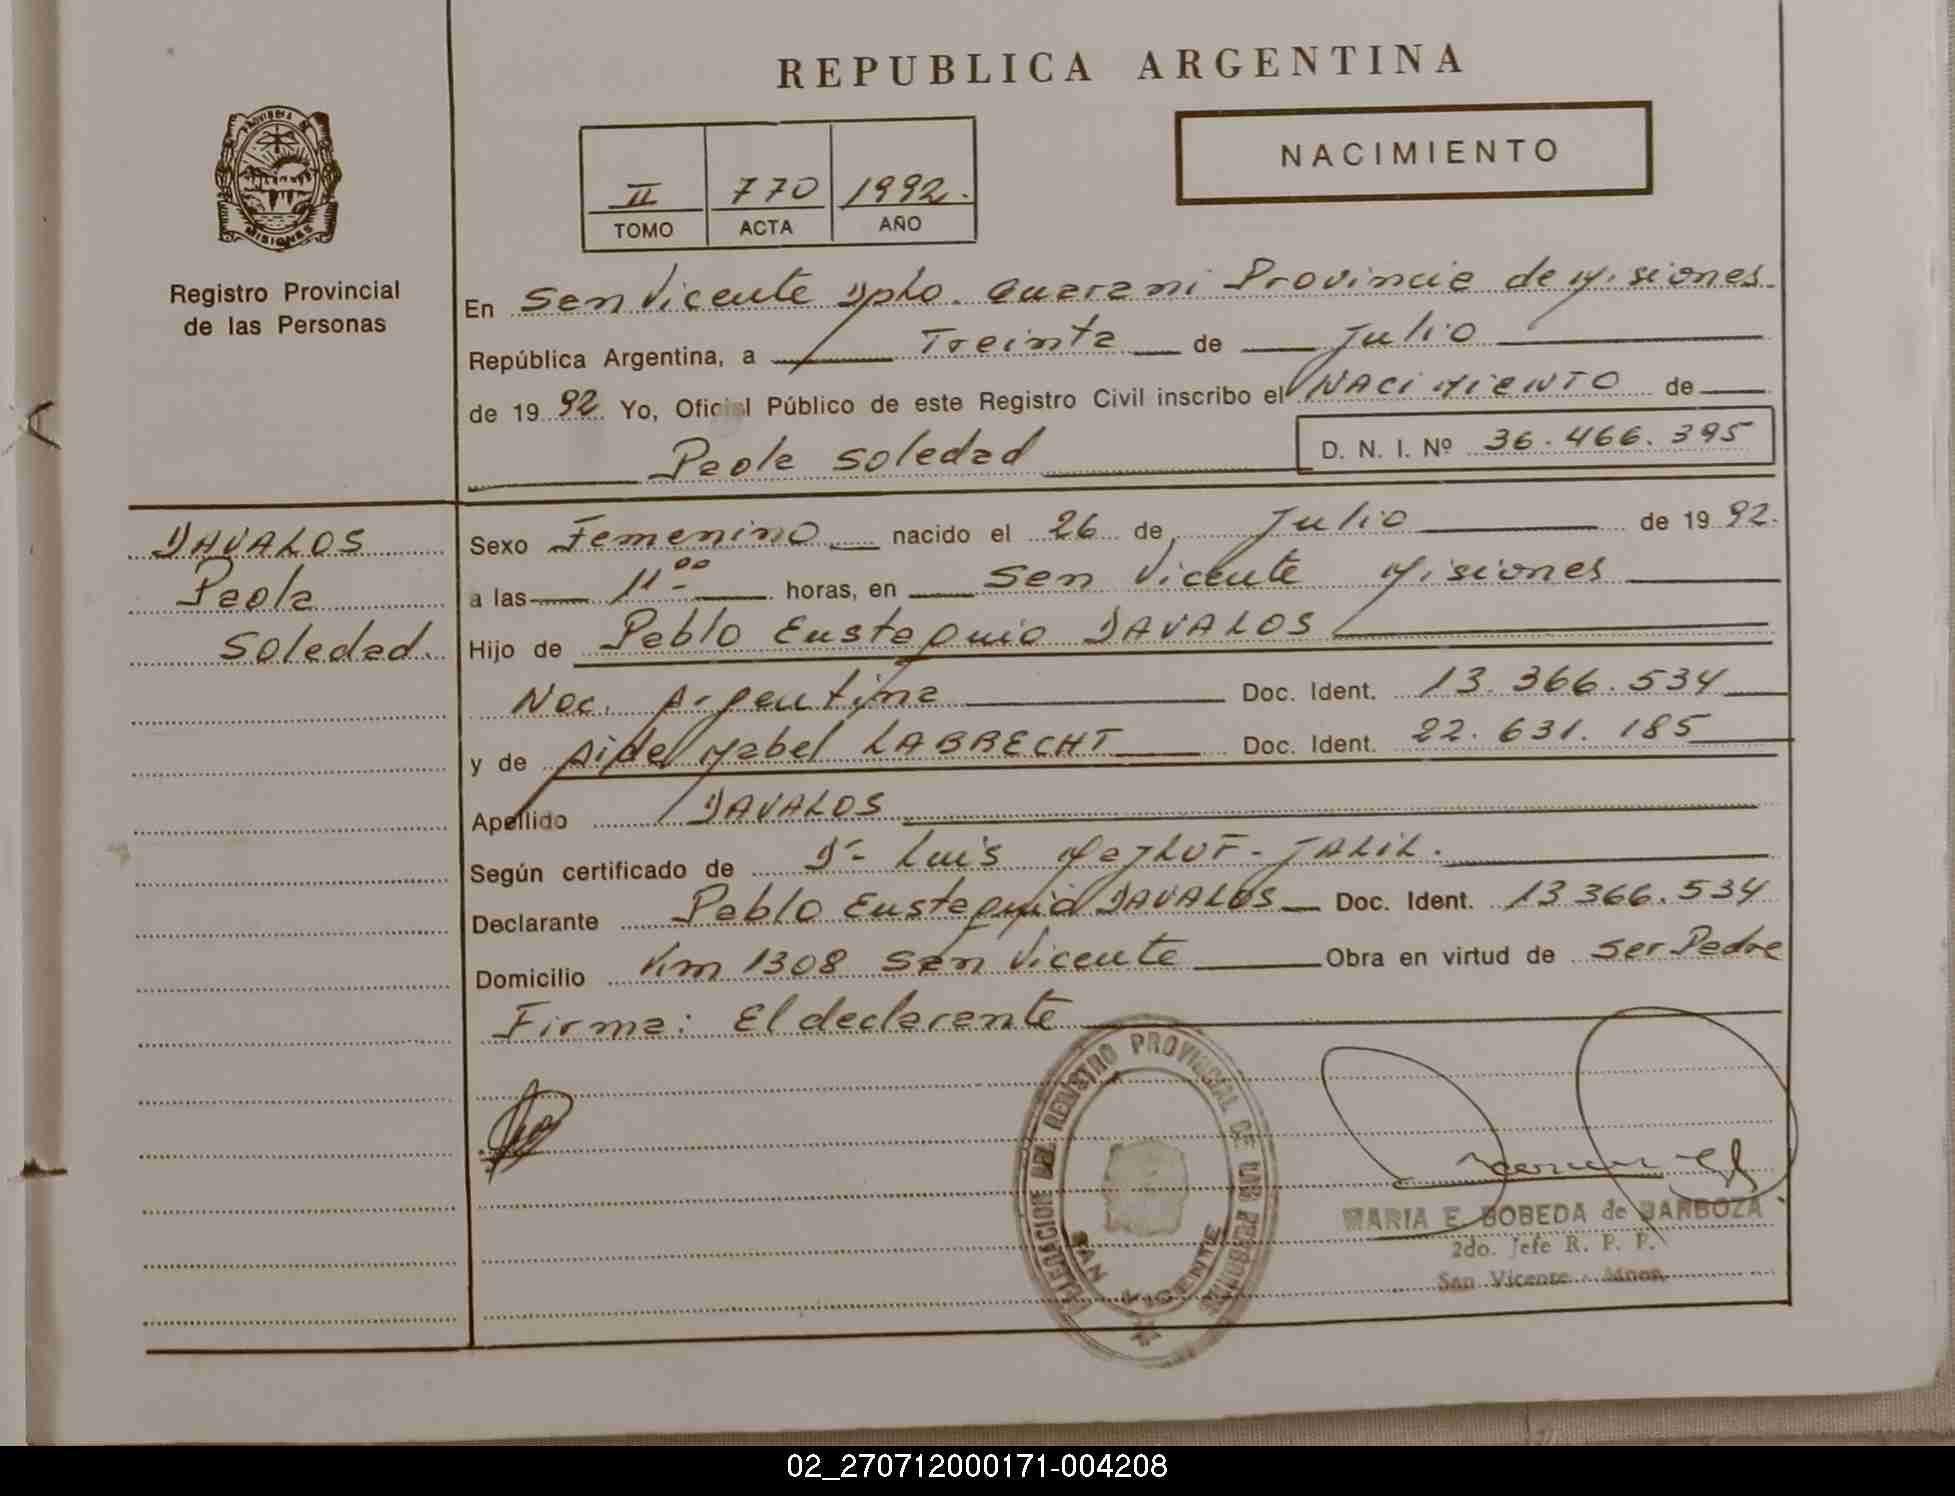 REPUBLICA ARGENTINA
NACIMIENTO
II 770 1992.
TOMO ACTA AÑO
PROVINCIA DE
MISIONES
Registro Provincial
de las Personas
En San Vicente Dpto. Guarani Provincia de Misiones
República Argentina, a Treinta de Julio
de 19 92. Yo, Oficial Público de este Registro Civil inscribo el NACIMIENTO de
Paola Soledad D. N. I. Nº 36.466.395
DAVALOS
Paola
Soledad.
Sexo Femenino nacido el 26 de Julio de 19 92.
a las 11 00 horas, en San Vicente Misiones
Hijo de Pablo Eustaquio DAVALOS
Nac. Argentina Doc. Ident. 13.366.534
y de Aide Mabel LABRECHT Doc. Ident. 22.631.185
Apellido DAVALOS
Según certificado de Dr. Luis JALIL.
Declarante Pablo Eustaquio DAVALOS Doc. Ident. 13366.534
Domicilio Km 1308 San Vicente Obra en virtud de ser Padre
Firma: El declarante
DELEGACION DEL REGISTRO PROVINCIAL DE LAS PERSONAS
SAN VICENTE
MARIA E. BOBEDA de BARBOZA
2do. Jefe R. P. P.
San Vicente - Mnes.
02_270712000171-004208